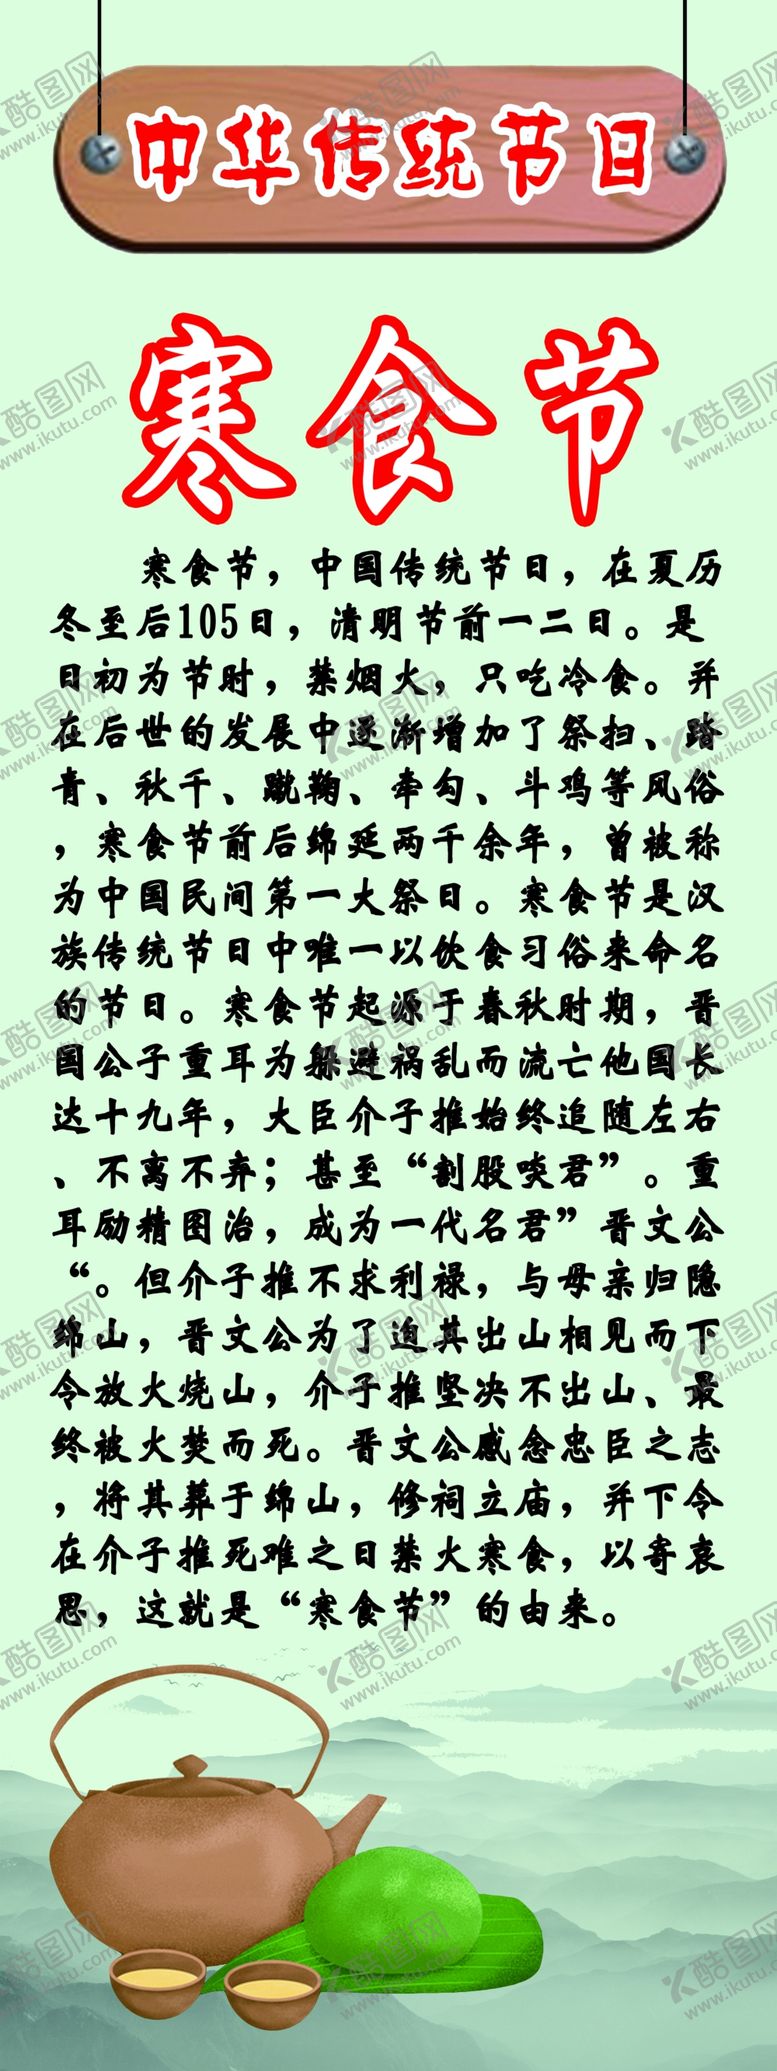 中华传统节日
寒食节
寒食节，中国传统节日，在夏历
冬至后105日，清明节前一二日。是
日初为节时，禁烟火，只吃冷食。并
在后世的发展中逐渐增加了祭扫、踏
青、秋千、蹴鞠、牵勾、斗鸡等风俗
，寒食节前后绵延两千余年，曾被称
为中国民间第一大祭日。寒食节是汉
族传统节日中唯一以饮食习俗来命名
的节日。寒食节起源于春秋时期，晋
国公子重耳为躲避祸乱而流亡他国长
达十九年，大臣介子推始终追随左右
、不离不弃；甚至“割股啖君”。重
耳励精图治，成为一代名君”晋文公
“。但介子推不求利禄，与母亲归隐
绵山，晋文公为了迫其出山相见而下
令放火烧山，介子推坚决不出山、最
终被火焚而死。晋文公感念忠臣之志
，将其葬于绵山，修祠立庙，并下令
在介子推死难之日禁火寒食，以寄哀
思，这就是“寒食节”的由来。
酷图网
www.ikutu.com